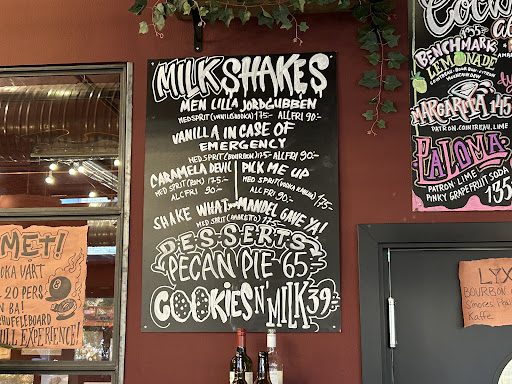 MILKSHAKES
MEN LILLA JORDGUBBEN
MED SPRIT (VANILJVODKA) 175- ALC.FRI 90:-
VANILLA IN CASE OF
EMERGENCY
MED SPRIT (BOURBON) 175- ALC.FRI 90:-
CARAMELA DEVIL
MED SPRIT (ROM) 175:-
ALC FRI 90.-
PICK ME UP
MED SPRIT (VODKA KAHLUA) 175:-
ALC FRI 90:-
SHAKE WHAT YOUR MANDEL GAVE YA!
MED SPRIT (AMARETTO) 175:-
DESSERTS
PECAN PIE 65
COOKIES N' MILK 39
BENCHMARK 155
LEMONADE
MARGARITA 145
PATRON. COINTREAU. LIME
PALOMA
PATRON - LIME
PINKY GRAPEFRUIT SODA
135
MET!
OKA VÅRT
20 PERS
N BA!
HUFFLEBOARD
ULL EXPERIENCE!
LYX
BOURBON
Smores
Kaffe